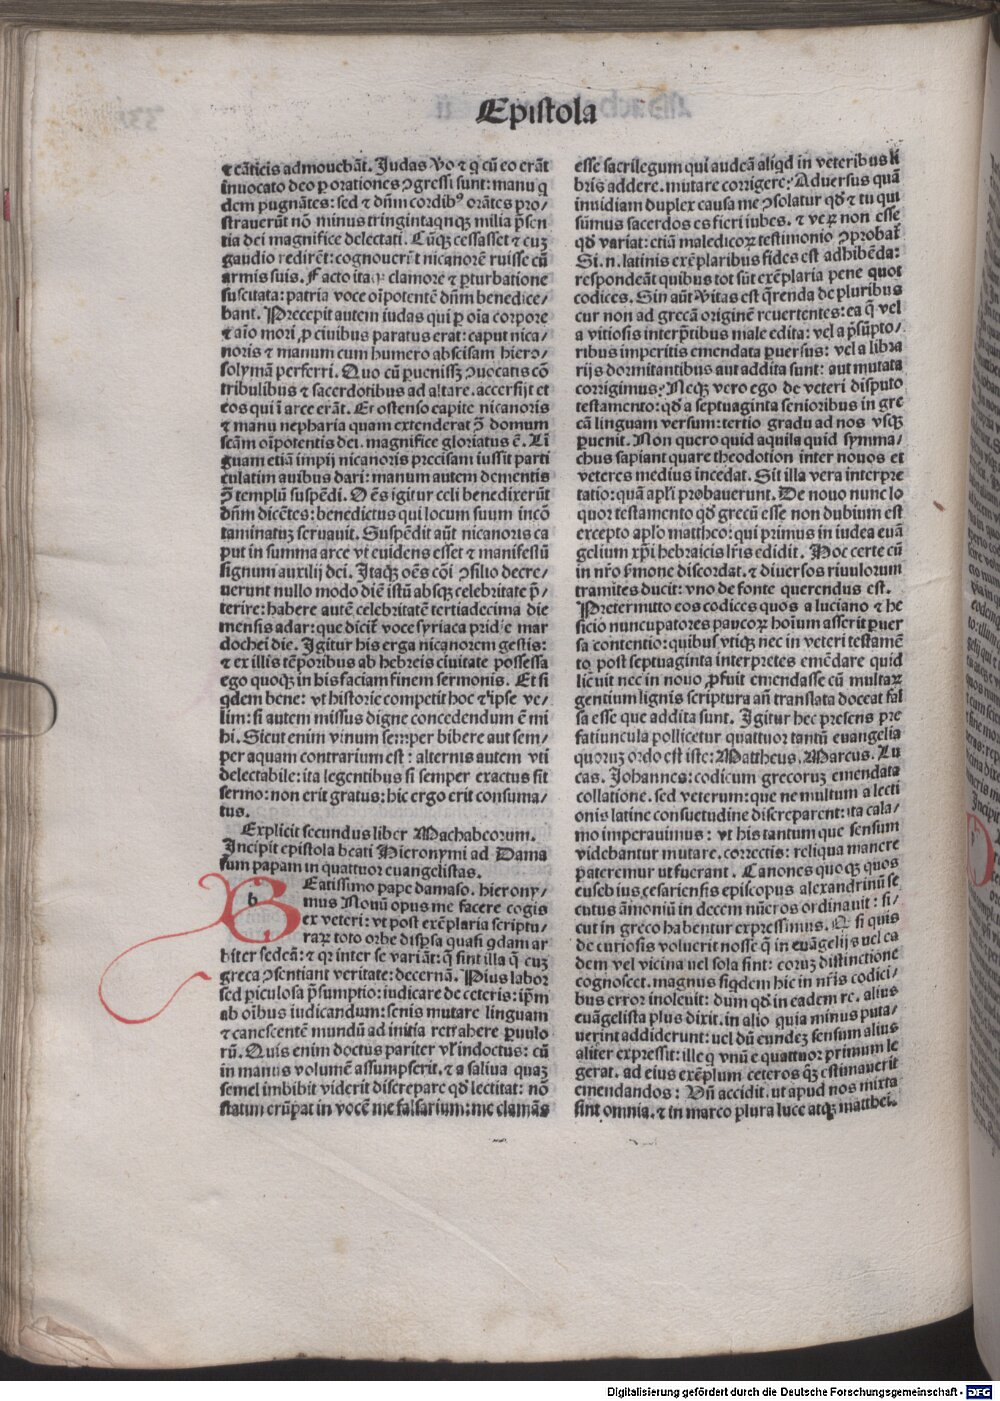 Epistola
⁊ cãticis admouebãt. Judas ṽo ⁊ q cũ eo erãt
inuocato deo ꝑ orationes ꝯgressi sunt: manu q
dem pugnãtes: sed ⁊ dñm cordibꝰ orãtes pro/
strauerũt nõ minus trigintaqnqꝫ milia p̃sen
tia dei magnifice delectati. Cũqꝫ cessasset ⁊ cuꝫ
gaudio redirẽt: cognouerũt nicanorẽ ruisse cũ
armis suis. Facto itaqꝫ clamore ⁊ ꝑturbatione
suscitata: patria voce oĩpotentẽ dñm benedice/
bant. Precepit autem iudas qui ꝑ oĩa corpore
⁊ aĩo mori ꝓ ciuibus paratus erat: caput nica/
noris ⁊ manum cum humero abscisam hiero/
solymã perferri. Quo cũ ꝑuenissꝫ ꝯuocatis cõ
tribulibus ⁊ sacerdotibus ad altare. accersijt et
eos qui ĩ arce erãt. Et ostenso capite nicanoris
⁊ manu nepharia quam extenderat ꝯ̃ domum
scãm oĩpotentis dei. magnifice gloriatus ẽ. Lĩ
guam etiã impij nicanoris precisam iussit parti
culatim auibus dari: manum autem dementis
ꝯ̃ templũ suspẽdi. Oẽs igitur celi benedixerũt
dñm dicẽtes: benedictus qui locum suum incõ
taminatuꝫ seruauit. Suspẽdit aũt nicanoris ca
put in summa arce vt euidens esset ⁊ manifestũ
signum auxilij dei. Itaqꝫ oẽs cõi ꝯsilio decre/
uerunt nullo modo diẽ istũ absqꝫ celebritate p̃/
terire: habere autẽ celebritatẽ tertiadecima die
mensis adar: que dicit̃ voce syriaca pridie mar
dochei die. Igitur his erga nicanorem gestis:
⁊ ex illis tẽporibus ab hebreis ciuitate possessa
ego quoqꝫ in his faciam finem sermonis. Et si
qdem bene: vt historie competit hoc ⁊ ipse ve/
lim: si autem minus digne concedendum ẽ mi
hi. Sicut enim vinum semper bibere aut sem/
per aquam contrarium est: alternis autem vti
delectabile: ita legentibus si semper exactus sit
sermo: non erit gratus: hic ergo erit consuma/
tus.
Explicit secundus liber Machabeorum.
Incipit epistola beati Hieronymi ad Dama
sum papam in quattuor euangelistas.
b
BEatissimo pape damaso. hierony/
mus Nouũ opus me facere cogis
ex veteri: vt post exẽplaria scriptu/
raꝝ toto orbe disꝑsa quasi qdam ar
biter sedeã: ⁊ qꝛ inter se variãt: q̃ sint illa q̃ cuꝫ
greca ꝯsentiant veritate: decernã. Pius labor
sed ꝑiculosa p̃sumptio: iudicare de ceteris: ip̃m
ab oĩbus iudicandum: senis mutare linguam
⁊ canescentẽ mundũ ad initia retrahere ꝑuulo
rũ. Quis enim doctus pariter vl̃ indoctus: cũ
in manus volumẽ assumpserit. ⁊ a saliua quaꝫ
semel imbibit viderit discrepare qd̃ lectitat: nõ
statum erũpat in vocẽ me falsarium: me clamãs
esse sacrilegum qui audeã aliqd in veteribus li
bris addere. mutare corrigere: Aduersus quã
inuidiam duplex causa me ꝯsolatur qd̃ ⁊ tu qui
sũmus sacerdos es fieri iubes. ⁊ veꝝ non esse
qd̃ variat: etiã maledicoꝝ testimonio ꝯprobat̃
Si. n. latinis exẽplaribus fides est adhibẽda:
respondeãt quibus tot sũt exẽplaria pene quot
codices. Sin aũt ṽitas est q̃renda de pluribus
cur non ad grecã originẽ reuertentes: ea q̃ vel
a vitiosis interp̃tibus male edita: vel a p̃sũpto/
ribus imperitis emendata ꝑuersus: vel a libra
rijs dormitantibus aut addita sunt: aut mutata
corrigimus: Neqꝫ vero ego de veteri disputo
testamento: qd̃ a septuaginta senioribus in gre
cã linguam versum: tertio gradu ad nos vsqꝫ
ꝑuenit. Non quero quid aquila quid symma/
chus sapiant quare theodotion inter nouos et
veteres medius incedat. Sit illa vera interpre
tatio: quã apl̃i probauerunt. De nouo nunc lo
quor testamento qd̃ grecũ esse non dubium est
excepto apl̃o mattheo: qui primus in iudea euã
gelium xp̃i hebraicis lr̃is edidit. Hoc certe cũ
in nr̃o ẽmone discordat. ⁊ diuersos riuulorum
tramites ducit: vno de fonte querendus est.
Pretermitto eos codices quos a luciano ⁊ he
sicio nuncupatores paucoꝝ hoĩum asserit ꝑuer
sa contentio: quibus vtiqꝫ nec in veteri testamẽ
to post septuaginta interpretes emẽdare quid
licuit nec in nouo ꝓfuit emendasse cũ multaꝝ
gentium lignis scriptura añ translata doceat fal
sa esse que addita sunt. Igitur hec presens pre
fatiuncula pollicetur quattuor tantũ euangelia
quoruꝫ ordo est iste: Mattheus. Marcus. Lu
cas. Johannes: codicum grecoruꝫ emendata
collatione. sed veterum: que ne multum a lecti
onis latine consuetudine discreparent: ita cala/
mo imperauimus: vt his tantum que sensum
videbantur mutare. correctis: reliqua manere
ꝑateremur vt fuerant. Canones quoqꝫ quos
eusebius cesariensis episcopus alexandrinũ se
cutus ãmoniũ in decem nũeros ordinauit: si/
cut in greco habentur expressimus. Qꝛ si quis
de curiosis voluerit nosse q̃ in euãgelijs uel ea
dem vel vicina vel sola sint: coruꝫ distinctione
cognoscet. magnus siqdem hic in nr̃is codici/
bus error inoleuit: dum qd̃ in eadem re. alius
euãgelista plus dixit. in alio quia minus puta/
uerint addiderunt: uel dũ eundeꝫ sensum alius
aliter expressit: ille q vnũ e quattuor primum le
gerat. ad eius exẽplum ceteros qꝫ estimauerit
emendandos: Vñ accidit. ut apud nos mixta
sint omnia. ⁊ in marco plura luce atqꝫ matthei.
Digitalisierung gefördert durch die Deutsche Forschungsgemeinschaft - DFG